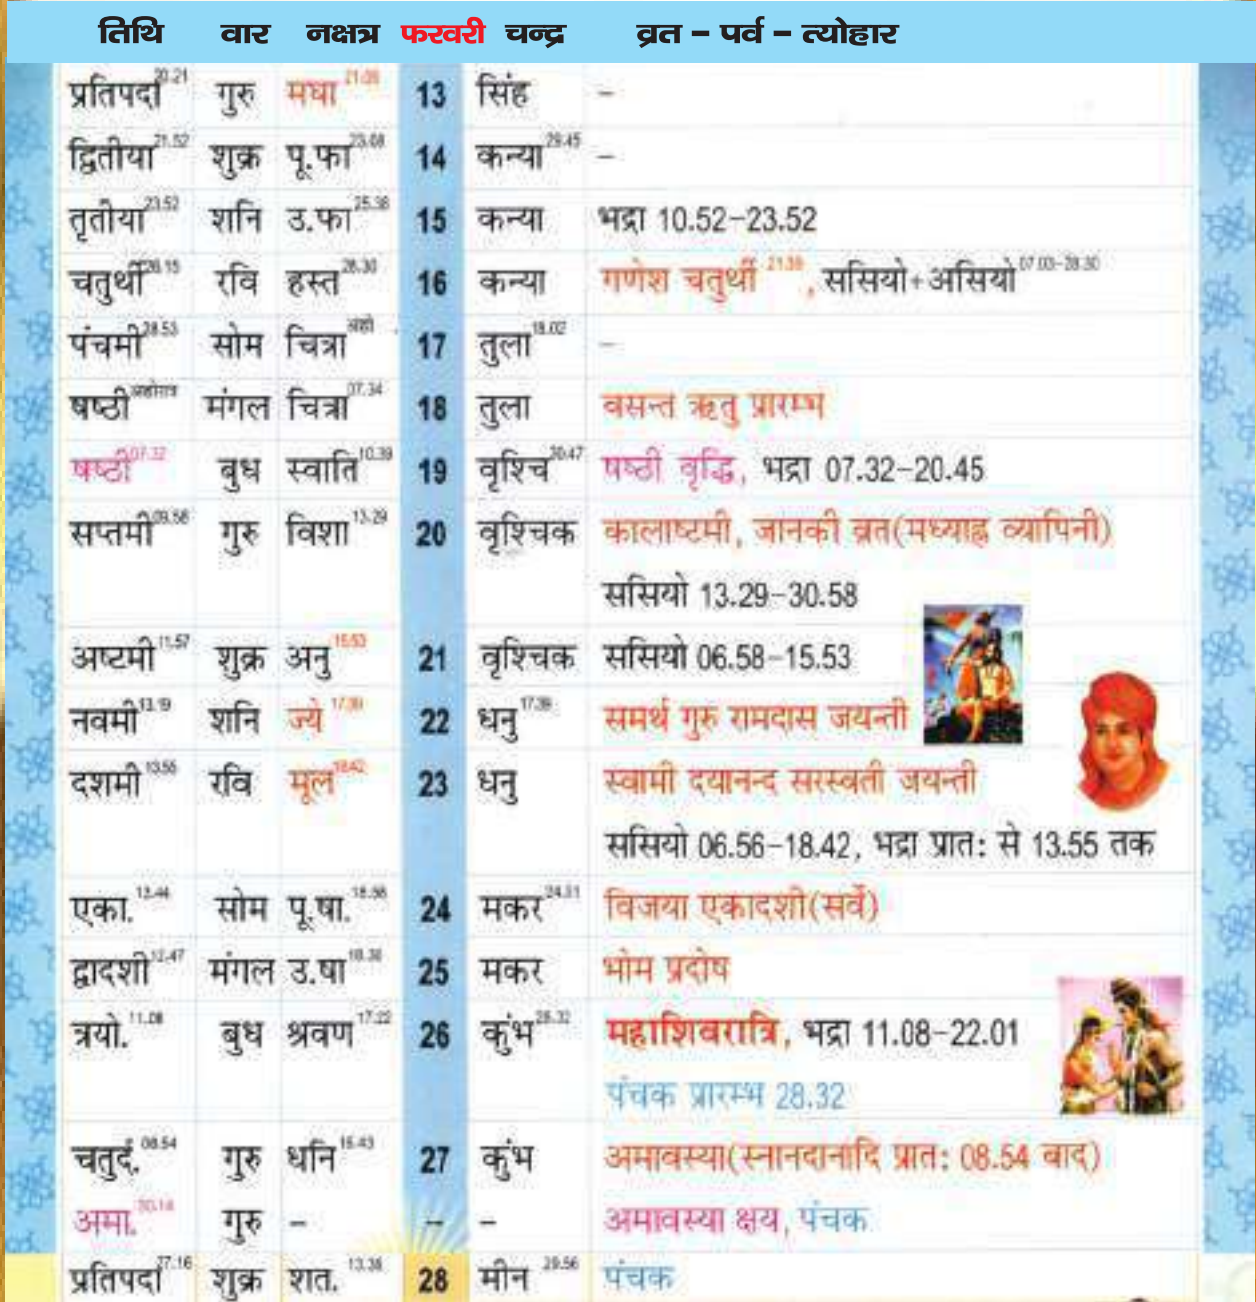 तिथि वार नक्षत्र फरवरी चन्द्र व्रत – पर्व – त्योहार
प्रतिपदा 20.21 गुरु मघा 21.06 13 सिंह –
द्वितीया 21.52 शुक्र पू.फा 23.08 14 कन्या 29.45 –
तृतीया 23.52 शनि उ.फा 25.38 15 कन्या भद्रा 10.52–23.52
चतुर्थी 26.15 रवि हस्त 28.30 16 कन्या गणेश चतुर्थी 21.39, ससियो+असियो 07.03–28.30
पंचमी 28.53 सोम चित्रा अहो 17 तुला 18.02 –
षष्ठी अहोरात्र मंगल चित्रा 07.34 18 तुला वसन्त ऋतु प्रारम्भ
षष्ठी 07.32 बुध स्वाति 10.39 19 वृश्चि 20.47 षष्ठी वृद्धि, भद्रा 07.32–20.45
सप्तमी 09.58 गुरु विशा 13.29 20 वृश्चिक कालाष्टमी, जानकी व्रत(मध्याह्न व्यापिनी)
ससियो 13.29–30.58
अष्टमी 11.57 शुक्र अनु 15.53 21 वृश्चिक ससियो 06.58–15.53
नवमी 13.19 शनि ज्ये 17.39 22 धनु 17.39 समर्थ गुरु रामदास जयन्ती
दशमी 13.55 रवि मूल 18.42 23 धनु स्वामी दयानन्द सरस्वती जयन्ती
ससियो 06.56–18.42, भद्रा प्रात: से 13.55 तक
एका. 13.44 सोम पू.षा. 18.58 24 मकर 24.51 विजया एकादशी(सर्वे)
द्वादशी 12.47 मंगल उ.षा 18.30 25 मकर भोम प्रदोष
त्रयो. 11.08 बुध श्रवण 17.22 26 कुंभ 28.32 महाशिवरात्रि, भद्रा 11.08–22.01
पंचक प्रारम्भ 28.32
चतुर्द. 08.54 गुरु धनि 15.43 27 कुंभ अमावस्या(स्नानदानादि प्रात: 08.54 बाद)
अमा. 30.14 गुरु – – – अमावस्या क्षय, पंचक
प्रतिपदा 27.16 शुक्र शत. 13.38 28 मीन 29.56 पंचक